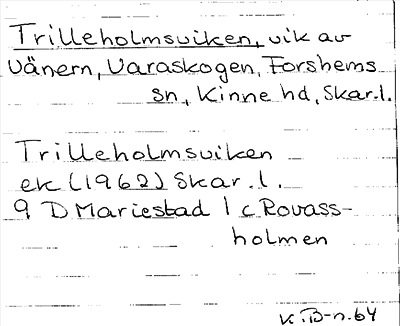 Trilleholmsviken, vik av
Vänern, Varaskogen, Forshems
sn, Kinne hd, Skar.l.
Trilleholmsviken
ek (1962) Skar.l.
9 D Mariestad 1 c Rovass-
holmen
K.B-n.64